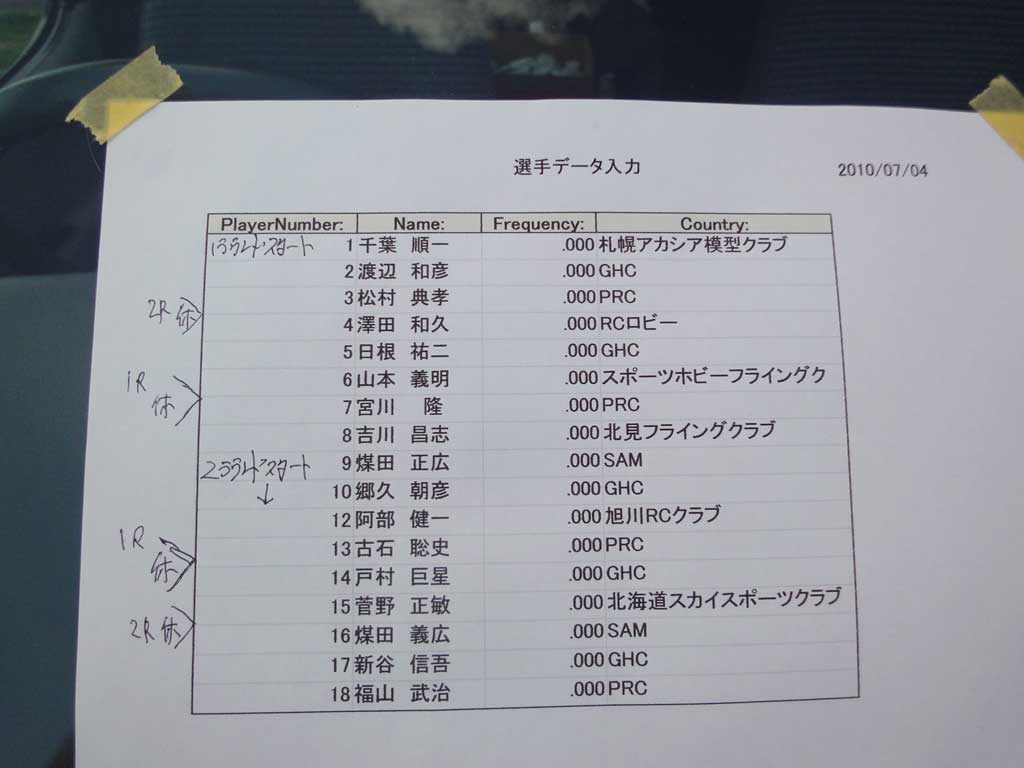 選手データ入力 2010/07/04
PlayerNumber: Name: Frequency: Country:
1ラウンドスタート 1 千葉 順一 .000 札幌アカシア模型クラブ
2 渡辺 和彦 .000 GHC
3 松村 典孝 .000 PRC
2R 休
4 澤田 和久 .000 RCロビー
5 日根 祐二 .000 GHC
6 山本 義明 .000 スポーツホビーフライングク
1R
休
7 宮川 隆 .000 PRC
8 吉川 昌志 .000 北見フライングクラブ
2ラウンドスタート 9 煤田 正広 .000 SAM
↓ 10 郷久 朝彦 .000 GHC
12 阿部 健一 .000 旭川RCクラブ
1R
休
13 古石 聡史 .000 PRC
14 戸村 巨星 .000 GHC
15 菅野 正敏 .000 北海道スカイスポーツクラブ
2R 休
16 煤田 義広 .000 SAM
17 新谷 信吾 .000 GHC
18 福山 武治 .000 PRC